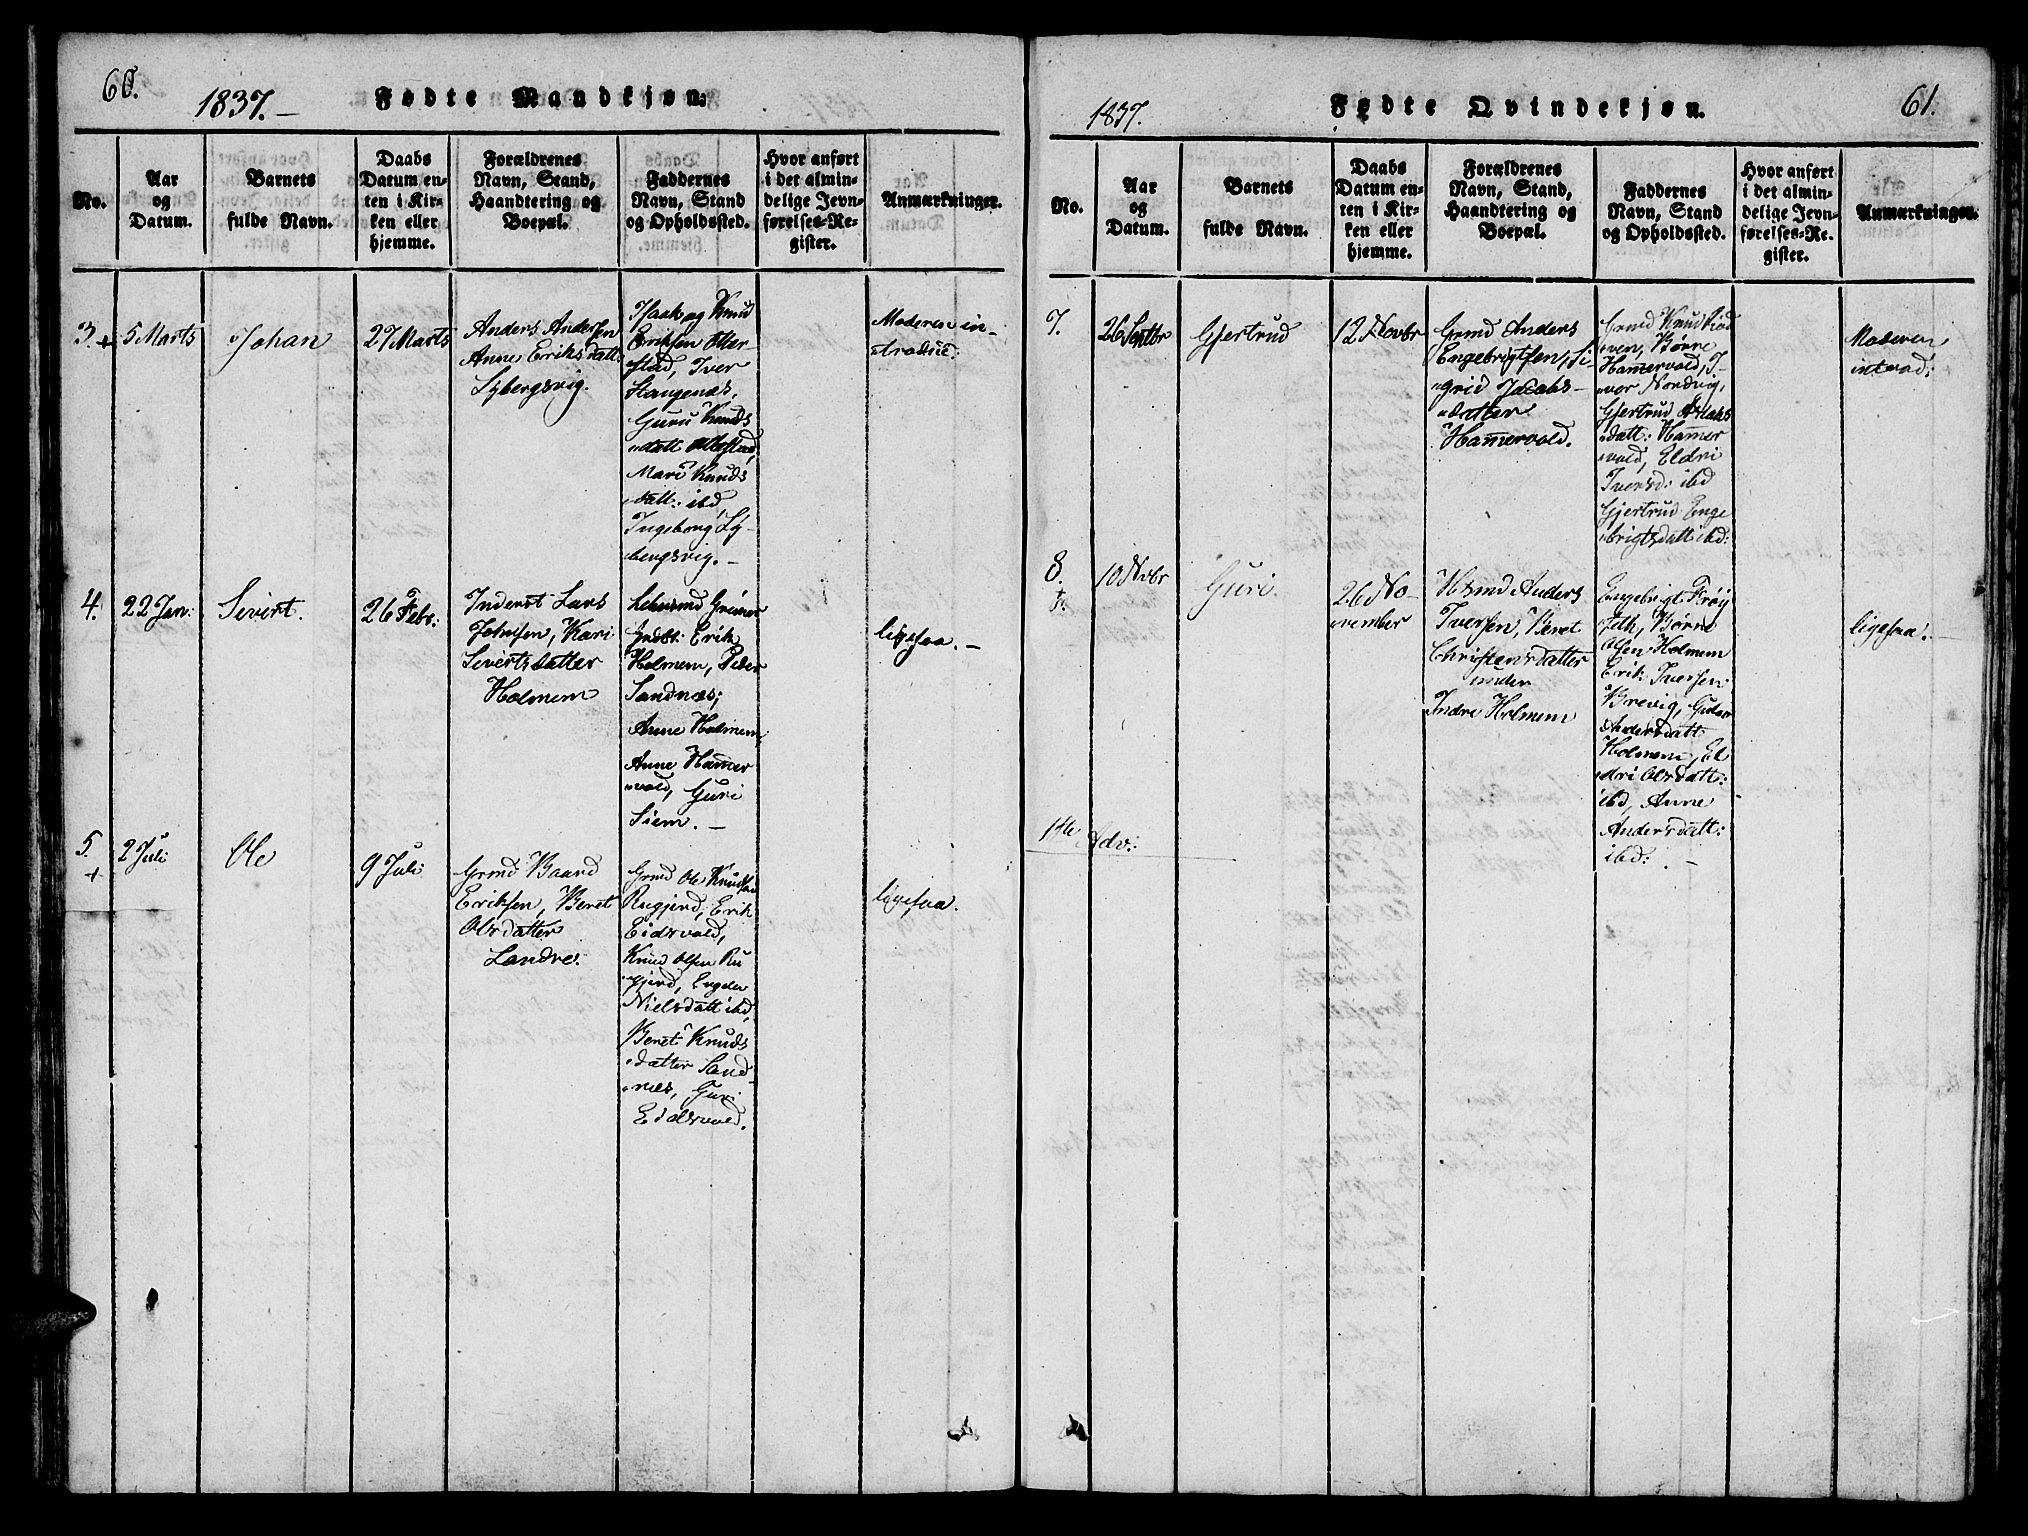 60.
1837.-
Fødte Mandkjøn.
No.
Aar
og
Datum.
Barnets
fulde Navn.
Daabs
Datum en-
ten i Kir-
ken eller
hjemme.
Forældrenes
Navn, Stand,
Haandtering og
Boepæl.
Faddernes
Navn, Stand
og Opholdssted.
Hvor anført
i det almin-
delige Jevn-
førelses-Re-
gister.
Anmærkninger.
3.+
5 Marts
Johan
27 Marts
Anders Andersen
Anne Eriksdatt:
Lybergsvig.
Isaak og Knud
Eriksen Otter
stad, Iver
Stangenæs,
Guru Knuds
datt
Mari Knuds
datt: ibd
Ingeborg Ly-
bergsvig.-
Moderen in-
troduc:
4.
22 Jan:
Sivert.
26 Febr:
Inderst Lars
Johnsen, Kari
Sivertsdatter
Holmem
Erik
Holmem, Peder
Sandnæs;
Anne Holmem,
Anne Hammer
vold, Guri
Siem.-
ligesaa.-
5.
+
2 Juli
Ole
9 Juli
Grmd Baard
Eriksen, Beret
Olsdatter
Landre.
Grmd Ole Knudsen
Rugjerd, Erik
Eidsvold,
Knud Olsen Ru
gjerd,
Nielsdatt ibd,
Beret Knuds
datter Sand
næs, Guri
Eidsvold.
ligesaa.
61.
1837.
Fødte Qvindekjøn.
No.
Aar
og
Datum.
Barnets
fulde Navn.
Daabs
Datum en-
ten i Kir-
ken eller
hjemme.
Forældrenes
Navn, Stand,
Haandtering og
Boepæl.
Faddernes
Navn, Stand
og Opholdssted.
Hvor anført
i det almin-
delige Jevn-
førelses-Re-
gister.
Anmærkninger.
7.
26 Septbr
Gjertrud
12 Novbr
Grmd Anders
Engebrigtsen, Si-
grid Jacobs-
datter
Hammervold.
Grmd Knud
Børre
Hamervold, I-
ver Nordvig,
Gjertrud
datt: Hamer
vold, Eldri
Iversd: ibd
Gjertrud Enge
brigtsdatt ibd:
Moderen
introd:
8.
10 Nvbr
Guri.
26 No-
vember
Hsmd Anders
Iversen, Beret
Christensdatter
under
Indre Holmem
Engebrigt Frøy
seth, Børre
Olsen Holmem
Erik Iversen
Brevig,
Andersdatt
Holmem, El
dri Olsdatt:
ibd, Anne
Andersdatt:
ibd:-
ligesaa.-
1ste Adv: